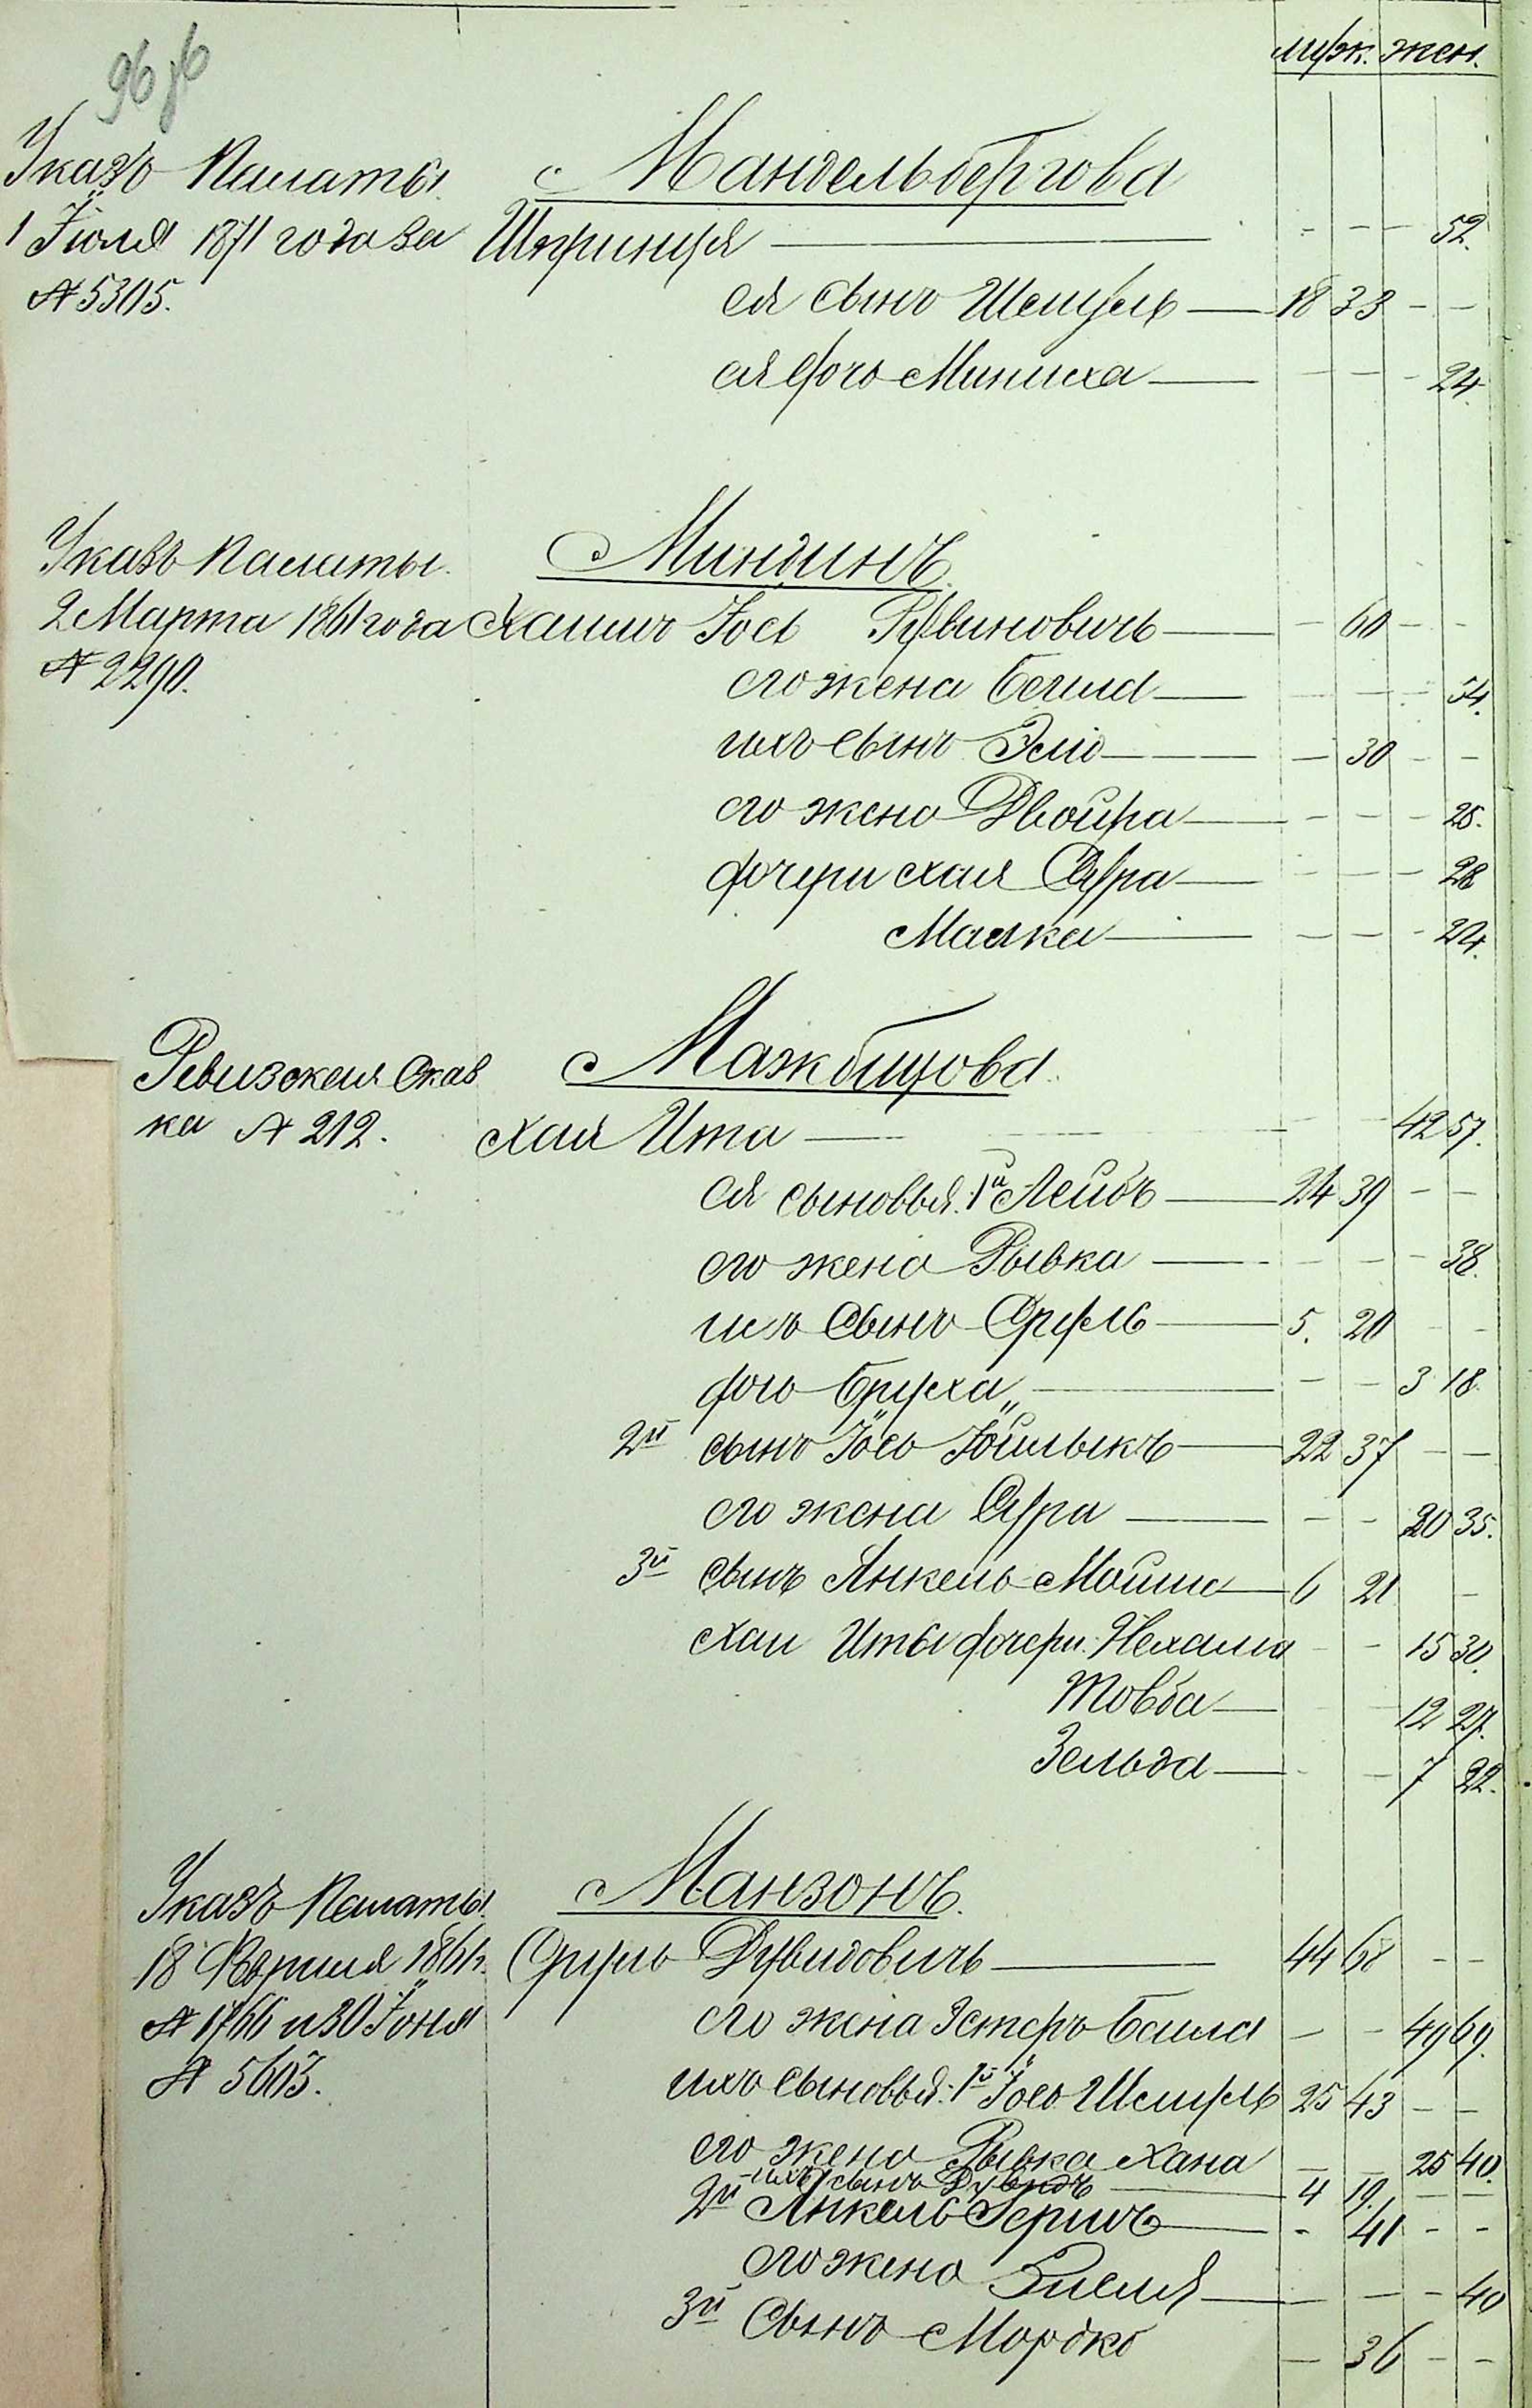 96 об
муж. жен.
Указъ Палаты
1 Іюля 1871 года за
№ 5305.
Мандельбергова
Шпринця — — — 52.
ея сынъ Шемуель 18 33 — —
ея дочь Миниха — — — 24.
Указъ Палаты.
2 Марта 1861 года
№ 2290.
Миндинъ.
Хаимъ Іось Рувиновичъ — 60 — —
его жена Бейла — — — 54.
ихъ сынъ Эліо — 30 — —
его жена Двойра — — — 25.
дочери Хая Сура — — — 28
Малка — — — 24.
Ревизская Сказ
ка № 212.
Мажбицова.
Хая Ита — — 42 57.
ея сыновья: 1й Лейбъ 24 39 — —
его жена Рывка — — — 38.
ихъ сынъ Сруль 5. 20 — —
дочь Бруха — — 3 18.
2й сынъ Іось Іойлыкъ 22 37 — —
его жена Сура — — 20 35.
3й сынъ Янкель Мошко 6 21 —
Хаи Иты дочери: Нехама — — 15 30.
Товба — 12 27.
Зельда — — 7 22.
Указъ Палаты.
18 Февраля 186 г.
№ 1766 и 30 Іюня
№ 5603.
Манзонъ.
Сруль Дувидовичъ 44 68 — —
его жена Эстеръ Бейла — — 49 69.
ихъ сыновья: 1й Іось Шмуль 25 43 — —
его жена Рывка Хана — — 25 40.
ихъ сынъ Дувидъ 4 19. — —
2й Янкель Гершъ — 41 — —
его жена — — — 40
3й Сынъ Мордко — 36 — —